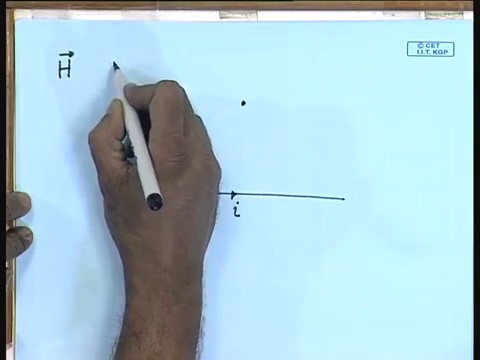 H⃗
© CET
I.I.T. KGP
i